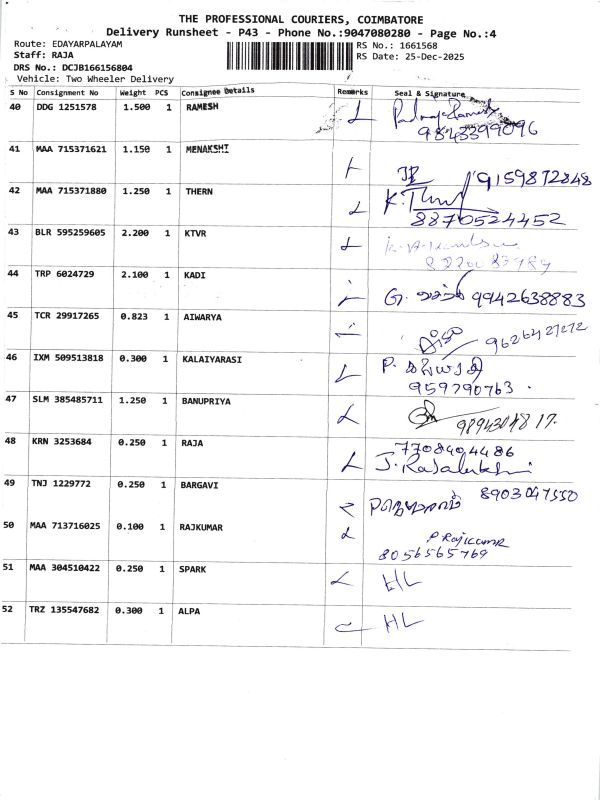 THE PROFESSIONAL COURIERS, COIMBATORE
Delivery Runsheet - P43 - Phone No.:9047080280 - Page No.:4
Route: EDAYARPALAYAM RS No.: 1661568
Staff: RAJA RS Date: 25-Dec-2025
DRS No.: DCJB166156804
Vehicle: Two Wheeler Delivery
S No Consignment No Weight PCS Consignee Details Remarks Seal & Signature
40 DDG 1251578 1.500 1 RAMESH
9843399096
41 MAA 715371621 1.150 1 MENAKSHI 9159872848
42 MAA 715371880 1.250 1 THERN K.
8870524452
43 BLR 595259605 2.200 1 KTVR
44 TRP 6024729 2.100 1 KADI G. 9942638883
45 TCR 29917265 0.823 1 AIWARYA
46 IXM 509513818 0.300 1 KALAIYARASI P.
9597790763.
47 SLM 385485711 1.250 1 BANUPRIYA
48 KRN 3253684 0.250 1 RAJA 7708404486
49 TNJ 1229772 0.250 1 BARGAVI
50 MAA 713716025 0.100 1 RAJKUMAR P Rajkumar
8056565769
51 MAA 304510422 0.250 1 SPARK HL
52 TRZ 135547682 0.300 1 ALPA HL